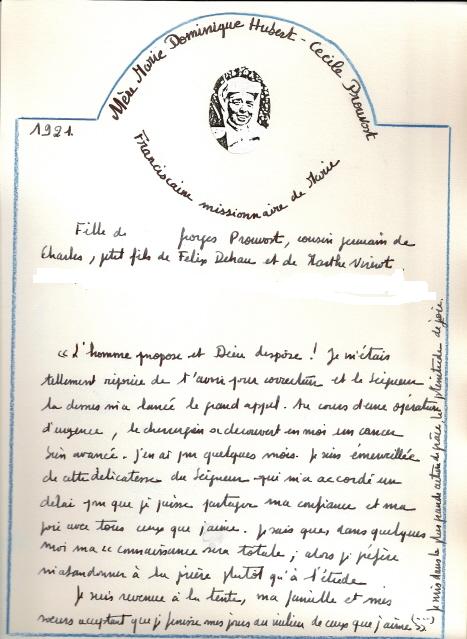 Mère Marie Dominique Hubert - Cécile Prouvost
1921.
Franciscaine missionnaire de Marie
Fille de Georges Prouvost, cousin germain de
Charles, petit fils de Félix Dehau et de Marthe Virnot
« L'homme propose et Dieu dispose ! Je m'étais
tellement réjouie de t'avoir pour correcteur et le Seigneur
là dessus m'a lancé le grand appel. Au cours d'une opération
d'urgence, le chirurgien a découvert en moi un cancer
bien avancé. J'en ai pr quelques mois. Je suis émerveillée
de cette délicatesse du Seigneur qui m'a accordé un
délai pr que je puisse partager ma confiance et ma
joie avec tous ceux que j'aime. Je sais que dans quelques
mois ma « connaissance sera totale ; alors je préfère
m'abandonner à la prière plutôt qu'à l'étude
Je suis revenue à la tente, ma famille et mes
soeurs acceptant que je finisse mes jours au milieu de ceux que j'aime
Je suis dans la plus grande action de grâce, la plénitude de joie.